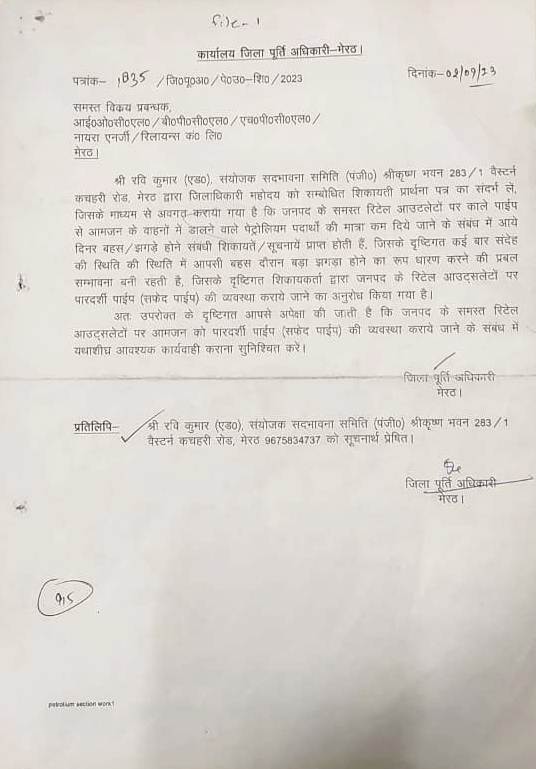 file-1
कार्यालय जिला पूर्ति अधिकारी–मेरठ।
पत्रांक– 1835 /जि0पू0अ0/पे0उ0–शि0/2023 दिनांक–02/09/23
समस्त विक्रय प्रबन्धक,
आई0ओ0सी0एल0/बी0पी0सी0एल0/एच0पी0सी0एल0/
नायरा एनर्जी/रिलायन्स कं0 लि0
मेरठ।
श्री रवि कुमार (एड0), संयोजक सदभावना समिति (पंजी0) श्रीकृष्ण भवन 283/1 वैस्टर्न
कचहरी रोड, मेरठ द्वारा जिलाधिकारी महोदय को सम्बोधित शिकायती प्रार्थना पत्र का संदर्भ लें,
जिसके माध्यम से अवगत कराया गया है कि जनपद के समस्त रिटेल आउटलेटों पर काले पाईप
से आमजन के वाहनों में डालने वाले पेट्रोलियम पदार्थो की मात्रा कम दिये जाने के संबंध में आये
दिनर बहस/झगडे होने संबंधी शिकायतें/सूचनायें प्राप्त होती हैं, जिसके दृष्टिगत कई बार संदेह
की स्थिति की स्थिति में आपसी बहस दौरान बड़ा झगड़ा होने का रूप धारण करने की प्रबल
सम्भावना बनी रहती है, जिसके दृष्टिगत शिकायकर्ता द्वारा जनपद के रिटेल आउट्सलेटों पर
पारदर्शी पाईप (सफेद पाईप) की व्यवस्था कराये जाने का अनुरोध किया गया है।
अतः उपरोक्त के दृष्टिगत आपसे अपेक्षा की जाती है कि जनपद के समस्त रिटेल
आउट्सलेटों पर आमजन को पारदर्शी पाईप (सफेद पाईप) की व्यवस्था कराये जाने के संबंध में
यथाशीघ्र आवश्यक कार्यवाही कराना सुनिश्चित करें।
जिला पूर्ति अधिकारी
मेरठ।
प्रतिलिपि– श्री रवि कुमार (एड0), संयोजक सदभावना समिति (पंजी0) श्रीकृष्ण भवन 283/1
वैस्टर्न कचहरी रोड, मेरठ 9675834737 को सूचनार्थ प्रेषित।
जिला पूर्ति अधिकारी
मेरठ।
915
petrolium section work1